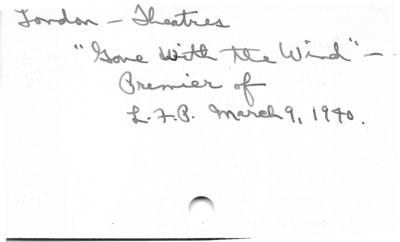 London - Theatres
"Gone With the Wind" -
Premier of
L.F.P. March 9, 1940.